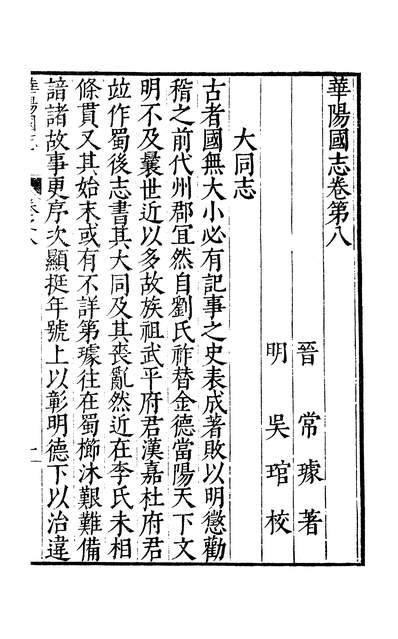 華陽國志卷第八
晉 常璩 著
明 吳琯 校
大同志
古者國無大小必有記事之史表成著敗以明懲勸
稽之前代州郡冝然自劉氏祚替金德當陽天下文
明不及曩世近以多故族祖武平府君漢嘉杜府君
竝作蜀後志書其大同及其喪亂然近在李氏未相
條貫又其始末或有不詳第璩往在蜀櫛沐艱難備
諳諸故事更序次顯挺年號上以彰明德下以治違